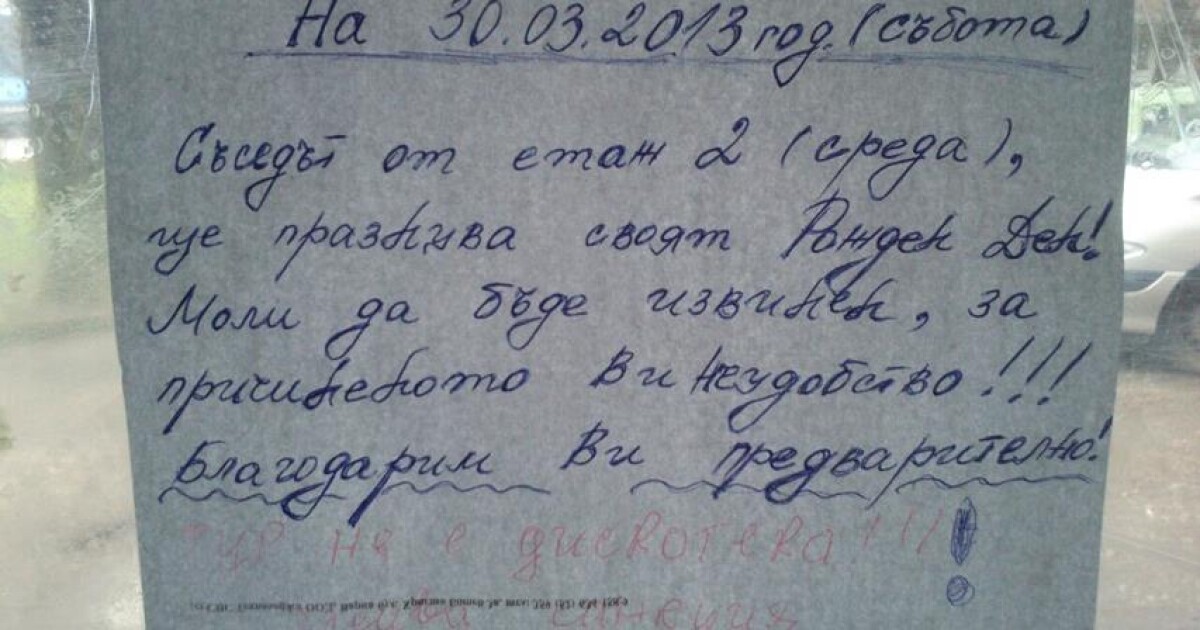 На 30.03.2013 год. (събота)
Съседът от етаж 2 (среда),
ще празнува своят Рожден Ден!
Моли да бъде извинен, за
причиненото Ви неудобство!!!
Благодарим Ви предварително!
не е дискотека!!! !